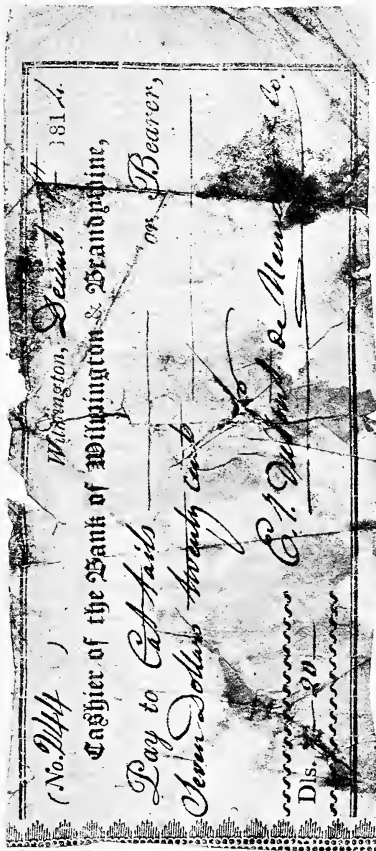 (No. 244 ) Wilmington, Decemb. 1814.
Cashier of the Bank of Wilmington & Brandywine,
Pay to Cattails or Bearer,
Seven Dollars twenty cents
E. I. DuPont de Nemours & Co.
Dls. 7 20